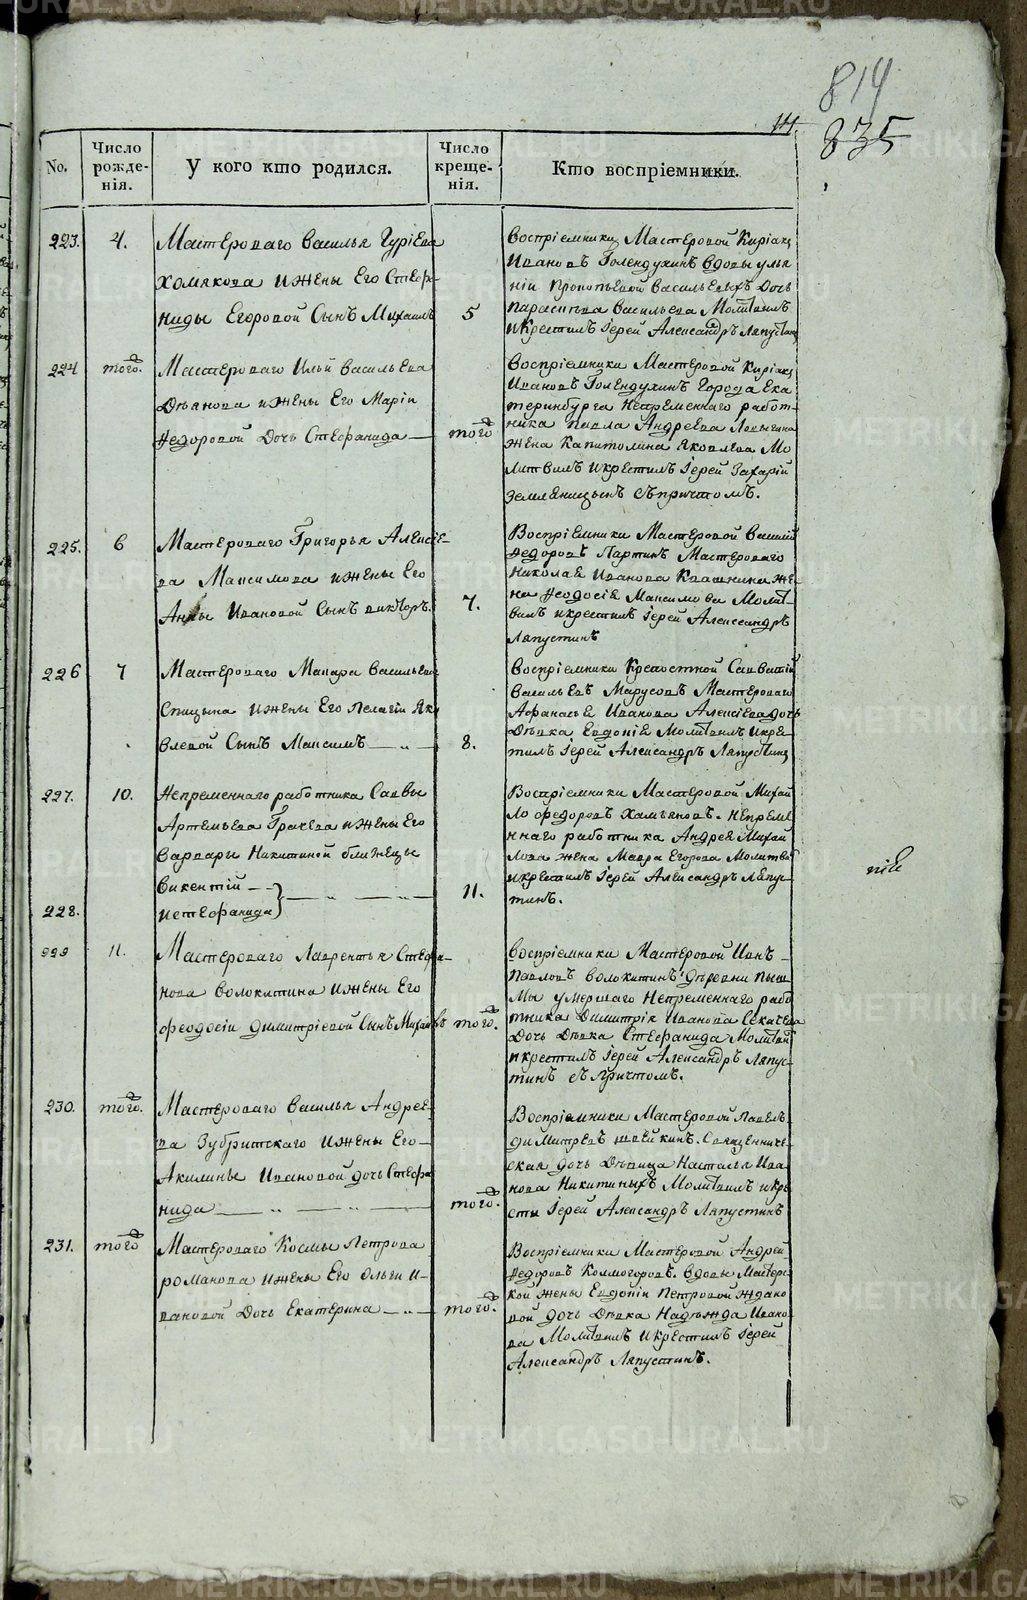 814
14.
835
No.
Число рожде-нія.
У кого кто родился.
Число креще-нія.
Кто воспріемники.
223.
4.
Мастероваго Василья Гуріева
Хомякова и жены Его Стефа-
ниды Егоровой Сынъ Михаилъ
5
Воспріемники Мастеровой Киріакъ
Ивановъ Голендухинъ вдовы улья
ніи Прокопьевой Васильевыхъ дочь
Параскева Васильева Молитвилъ
и Крестилъ Іерей Александръ Ляпустинъ
224
того.
Мастероваго Ильи Васильева
Деянова и жены Его Маріи
Федоровой Дочь Стефанида
того
Воспріемники Мастеровой Киріакъ
Ивановъ Голендухинъ Города Ека
теринбурга Непременнаго работ-
ника Павла Андреева
жена Капитолина Яковлева Мо
литвилъ и Крестилъ Іерей Захарій
Земляницынъ съ причтомъ.
225.
6
Мастероваго Григорья Алексіе-
ва Максимова и жены Его
Анны Ивановой Сынъ Викторъ.
7.
Воспріемники Мастеровой Василій
Федоровъ Партинъ Мастероваго
Николая Иванова Квашнина же-
на Феодосія Максимова Молит-
вилъ и крестилъ Іерей Александръ
Ляпустинъ
226
7
Мастероваго Макара Васильева
Спицына и жены Его Пелагіи Яко
влевой Сынъ Максимъ
8.
Воспріемники Крепостной Савватій
Васильевъ Марусовъ Мастероваго
Афанасья Иванова Алексіева дочь
Девка Евдокія Молитвилъ и Кре-
тилъ Іерей Александръ Ляпустинъ
227.
10.
Непременнаго работника Саввы
Артемьева Грачева и жены Его
Варвары Никитиной близнецы
Викентій
228.
и Стефанида
11.
Воспріемники Мастеровой Михай
ло Федоровъ Хамьяновъ. Непреме
ннаго работника Андрея Михай
лова жена Мавра Егорова Молитвилъ
и Крестилъ Іерей Александръ Ляпус-
тинъ.
229
11.
Мастероваго Лаврентья Стефа-
нова Волокитина и жены Его
Феодосіи Димитріевой Сынъ Михаилъ
того.
Воспріемники Мастеровой Иванъ
Павловъ Волокитинъ Деревни Пыш
мы умершаго Непременнаго рабо
тника Димитрія Иванова Секачева
Дочь Девка Стефанида Молитвилъ
и крестилъ Іерей Александръ Ляпус-
тинъ съ Причтомъ.
230.
того.
Мастероваго Василья Андрее-
ва Зубритскаго и жены Его
Акилины Ивановой дочь Стефа
нида
того.
Воспріемники Мастеровой Павелъ
Димитревъ Швейкинъ. Священниче-
ская дочь Девица Насталья Ива
нова Никитиныхъ Молитвилъ и кре
сти Іерей Александръ Ляпустинъ
231.
того
Мастероваго Космы Петрова
Романова и жены Его Ольги И-
вановой Дочь Екатерина
того.
Воспріемники Мастеровой Андрей
Федоровъ Колмогоровъ. вдовы Мастерс-
кой жены Евдокіи Петровой Ждано
вой дочь Девка Надежда Ивано
ва Молитвилъ и Крестилъ Іерей
Александръ Ляпустинъ.
METRIKI.GASO-URAL.RU